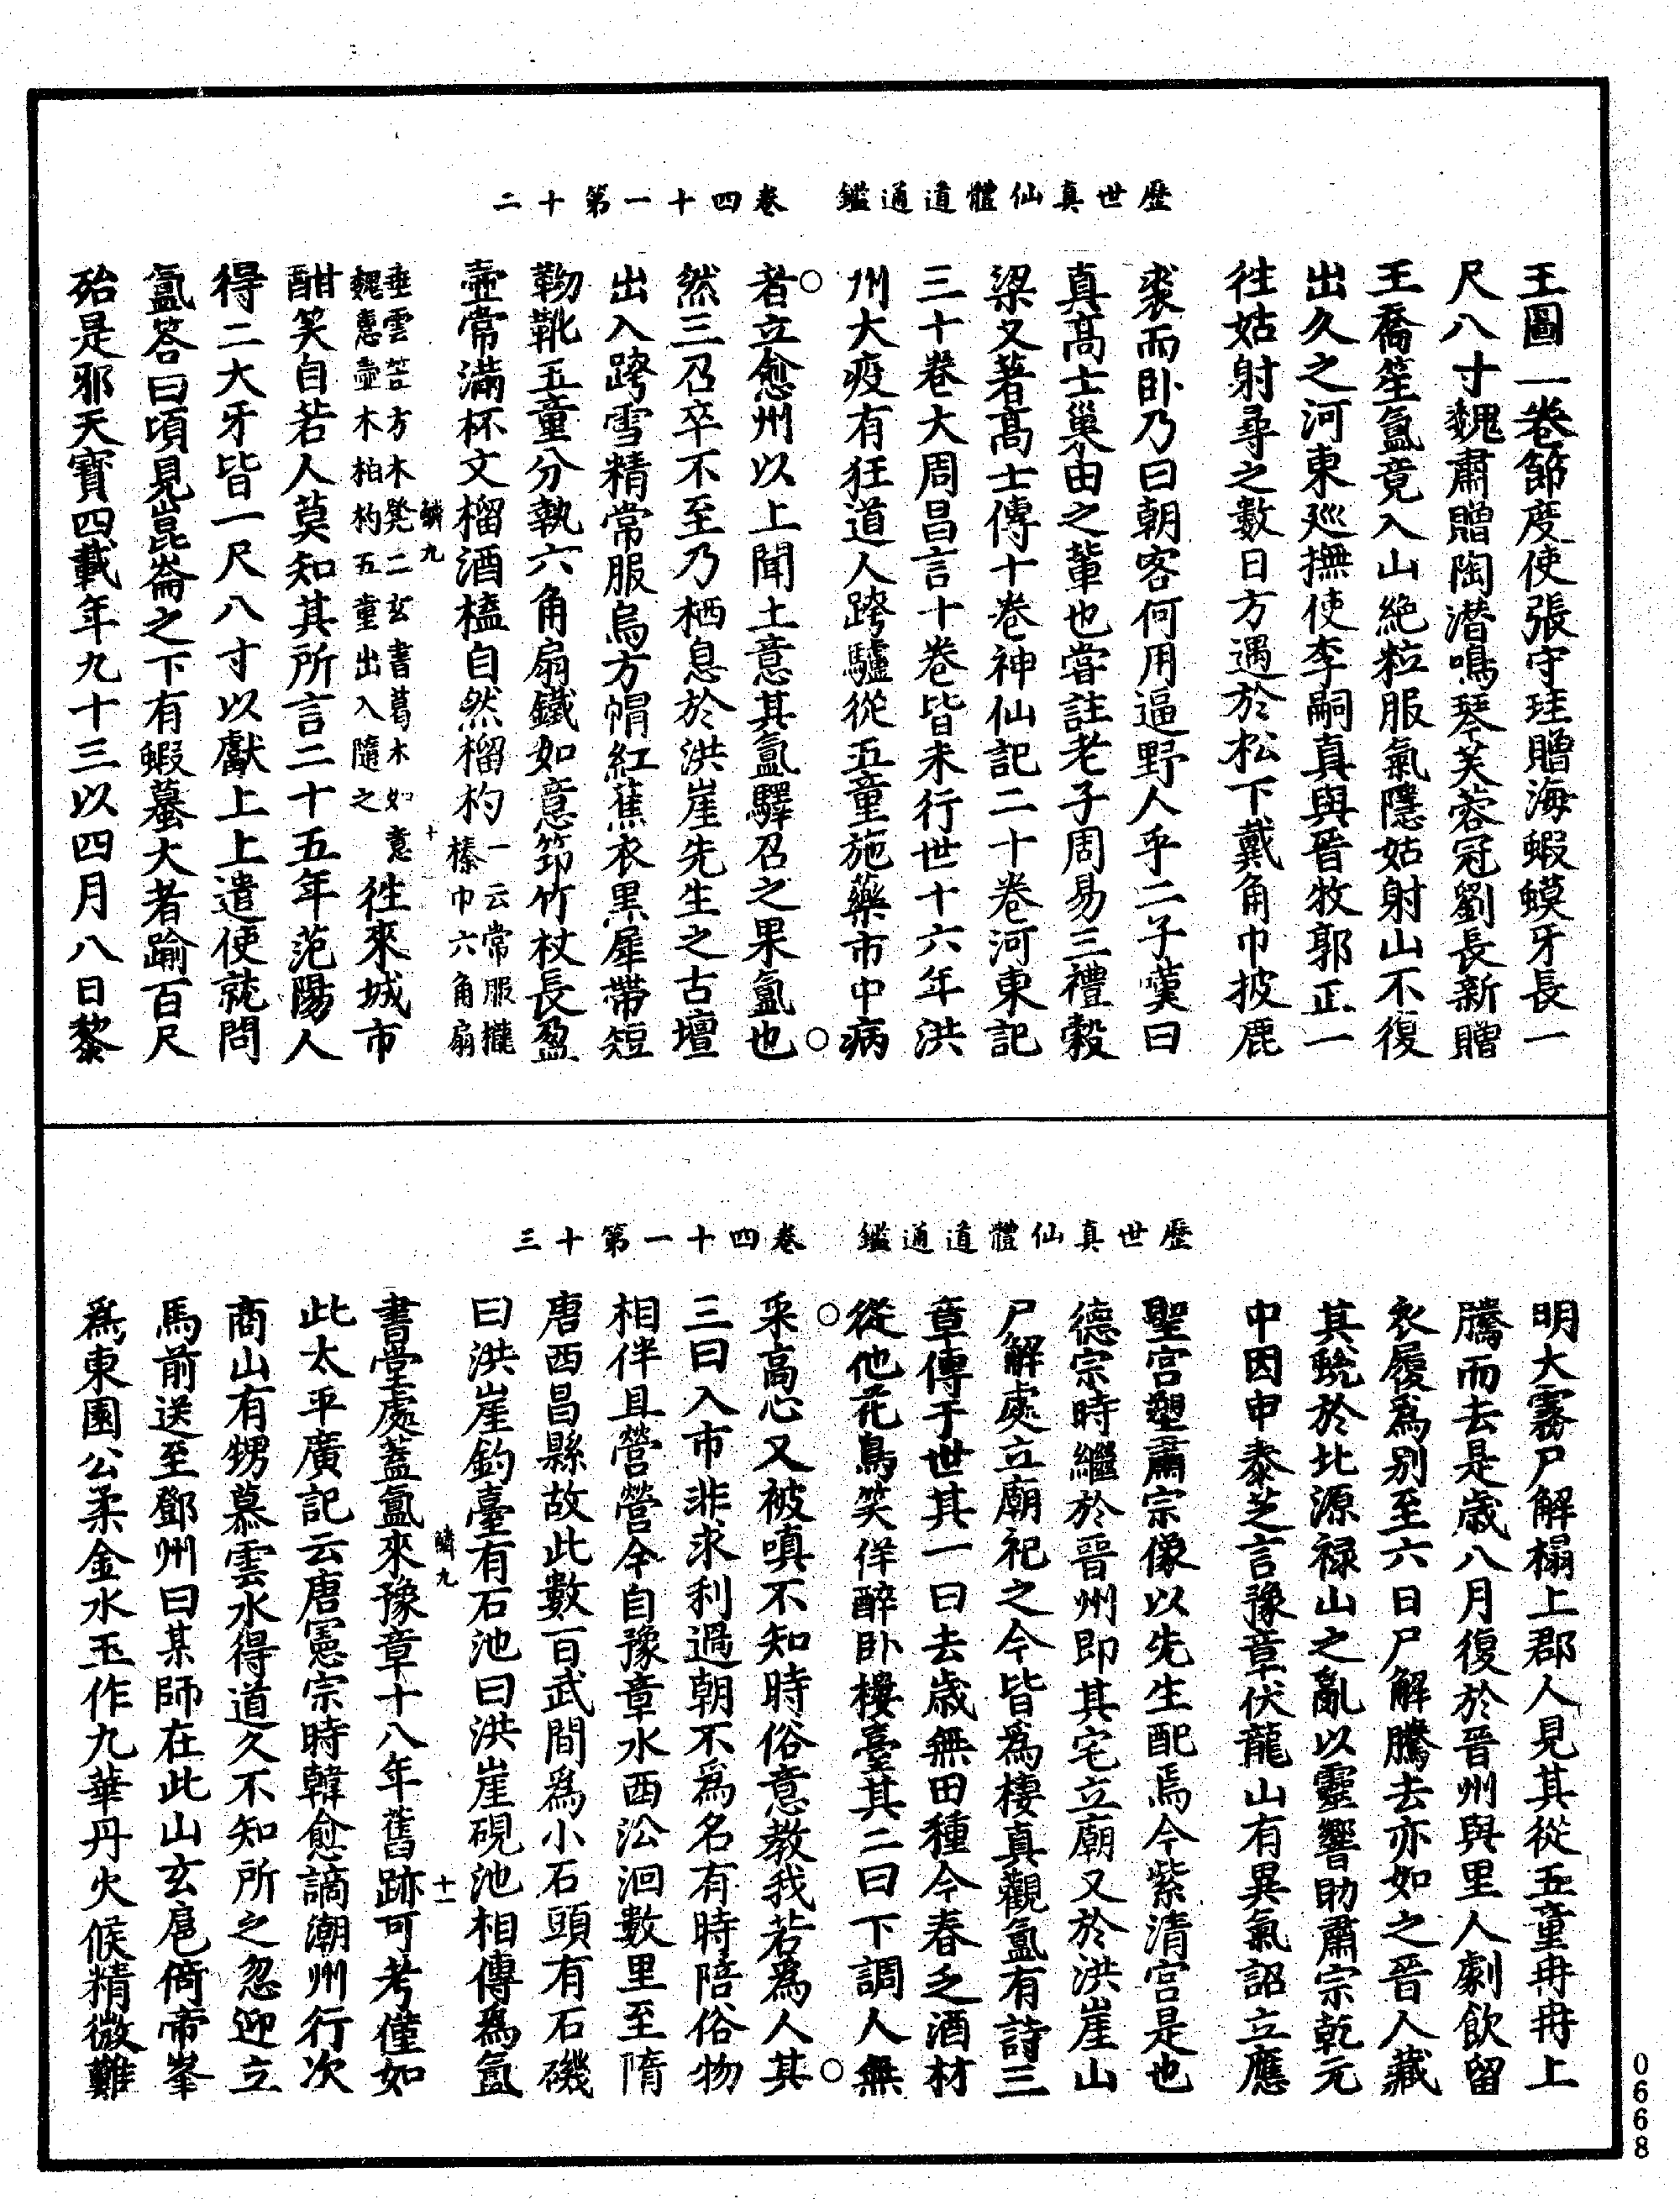 歷世真仙體道通鑑　卷四十一第十二
王圖一卷節度使張守珪贈海蝦蟆牙長一
尺八寸魏肅贈陶潛鳴琴芙蓉冠劉長新贈
王喬笙氳竟入山絶粒服氣隱姑射山不復
出久之河東廵撫使李嗣真與晉牧郭正一
徃姑射尋之數日方遇於松下戴角巾披鹿
裘而卧乃曰朝客何用逼野人乎二子嘆曰
真髙士巢由之軰也甞註老子周易三禮穀
梁又著髙士傳十卷神仙記二十卷河東記
三十卷大周昌言十卷皆未行世十六年洪
州大疫有狂道人跨驢從五童施藥市中病
者立愈州以上聞土意其氳驛召之果氳也
然三召卒不至乃栖息於洪崖先生之古壇
出入跨雪精常服烏方帽紅蕉衣黑犀帶短
靿靴五童分執六角扇鐵如意筇竹杖長盈
壺常滿杯文榴酒榼自然榴杓一云常服攏
榛巾六角扇
垂雲笠方木凳二玄書葛木如意
魏惠壺木柏杓五童出入隨之徃來城市
酣笑自若人莫知其所言二十五年范陽人
得二大牙皆一尺八寸以獻上上遣使就問
氳答曰頃見崑崙之下有蝦蟇大者踰百尺
殆是邪天寳四載年九十三以四月八日黎
鱗九
十
歷世真仙體道通鑑　卷四十一第十三
明大霧尸解榻上郡人見其從五童冉冉上
騰而去是歲八月復於晉州與里人劇飲留
衣履爲别至六日尸解騰去亦如之晉人藏
其蛻於北源禄山之亂以靈響助肅宗乾元
中因申泰芝言豫章伏龍山有異氣詔立應
聖宫塑肅宗像以先生配焉今紫清宫是也
德宗時繼於晉州即其宅立廟又於洪崖山
尸解處立廟祀之今皆爲棲真觀氳有詩三
章傳于世其一曰去歲無田種今春乏酒材
從他花鳥笑佯醉卧樓臺其二曰下調人無
采高心又被嗔不知時俗意教我若爲人其
三曰入市非求利過朝不爲名有時陪俗物
相伴且營營今自豫章水西㳂洄數里至隋
唐西昌縣故此數百武間爲小石頭有石磯
曰洪崖釣臺有石池曰洪崖硯池相傳爲氳
書堂處蓋氳來豫章十八年舊跡可考僅如
此太平廣記云唐憲宗時韓愈謫潮州行次
商山有甥慕雲水得道久不知所之忽迎立
馬前送至鄧州曰某師在此山玄扈倚帝峯
爲東園公柔金水玉作九華丹火候精微難
鱗九
十一
0668